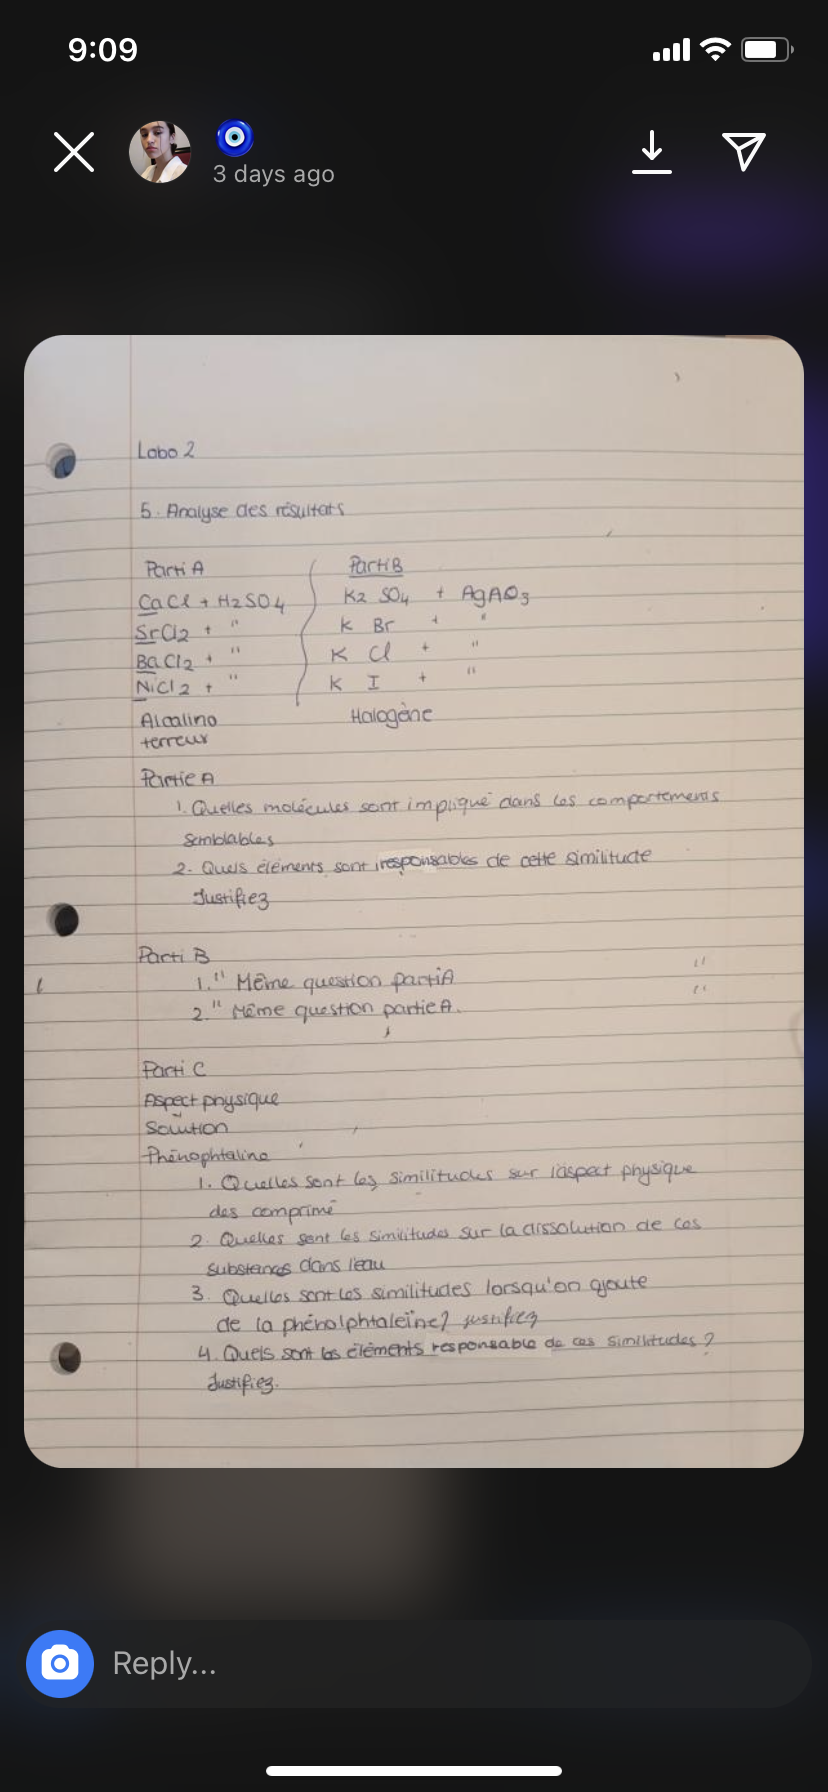 9:09
3 days ago
Labo 2
5. Analyse des résultats
Parti A
CaCl + H2SO4
SrCl2 + "
BaCl2 + "
NiCl2 + "
Alcalino
terreux
Parti B
K2 SO4 + AgAO3
K Br + "
K Cl + "
K I + "
Halogène
Partie A
1. Quelles molécules sont impliqué dans les comportements
semblables
2. Quels éléments sont responsables de cette similitude
Justifiez
Parti B
1. " Même question partiA "
2. " Même question partie A. "
Parti C
Aspect physique
Solution
Phénophtaline
1. Quelles sont les similitudes sur l'aspect physique
des comprimé
2. Quelles sont les similitudes sur la dissolution de ces
substances dans l'eau
3. Quelles sont les similitudes lorsqu'on ajoute
de la phénolphtaleïne? justifiez
4. Quels sont les éléments responsable de ces similitudes?
Justifiez.
Reply...